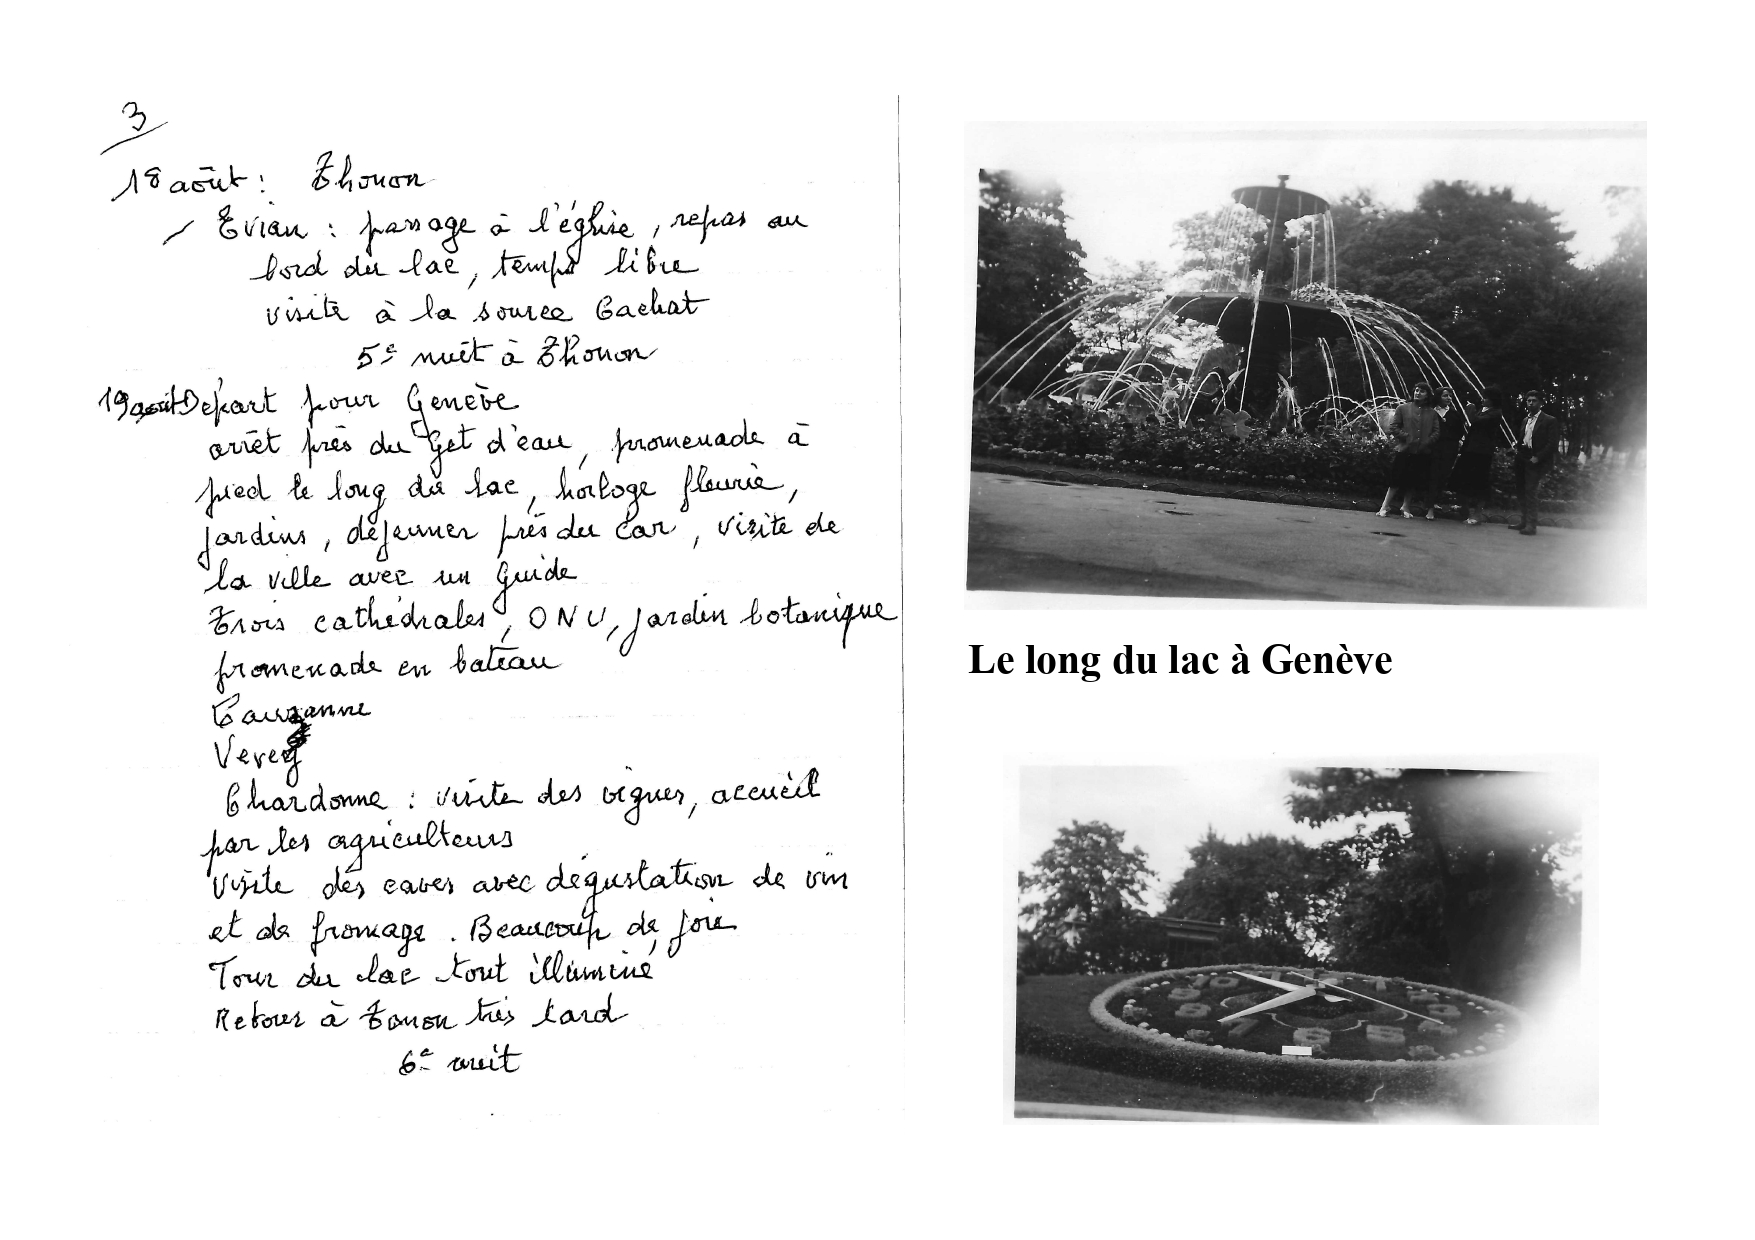 3
18 août : Thonon
Evian : passage à l'église, repas au
bord du lac, temps libre
visite à la source Cachat
5e nuit à Thonon
19 août Départ pour Genève
arrêt près du Jet d'eau, promenade à
pied le long du lac, horloge fleurie,
jardins, déjeuner près du car, visite de
la ville avec un guide
Trois cathédrales, ONU, jardin botanique
promenade en bateau
Lausanne
Vevey
Chardonne : visite des vignes, accueil
par les agriculteurs
Visite des caves avec dégustation de vin
et de fromage. Beaucoup de joie
Tour du lac tout illuminé
Retour à Tonon très tard
6e nuit
Le long du lac à Genève